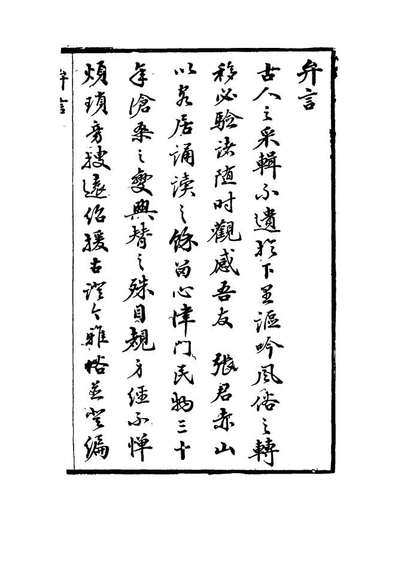 弁言
古人之采輯不遺於下里謳吟風俗之轉
移必驗諸随时觀感吾友張君赤山
以家居誦读之餘留心津门民物三十
年滄桑之變興替之殊目覩身經不惮
煩瑣旁搜遠紹援古證今雅俗並登編
弁言